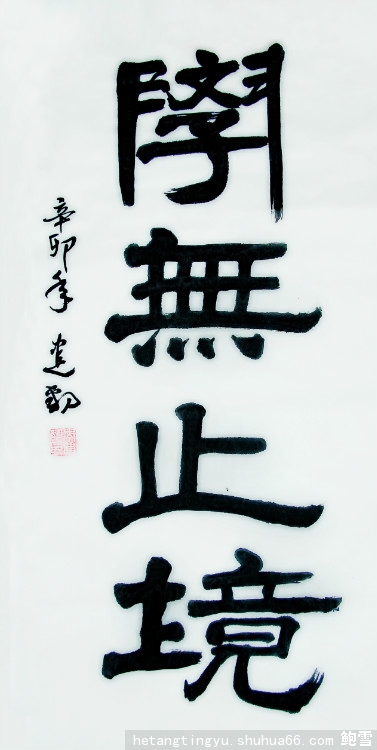 學無止境
辛卯年
hetangtingyu.shuhua66.com 鲍雪